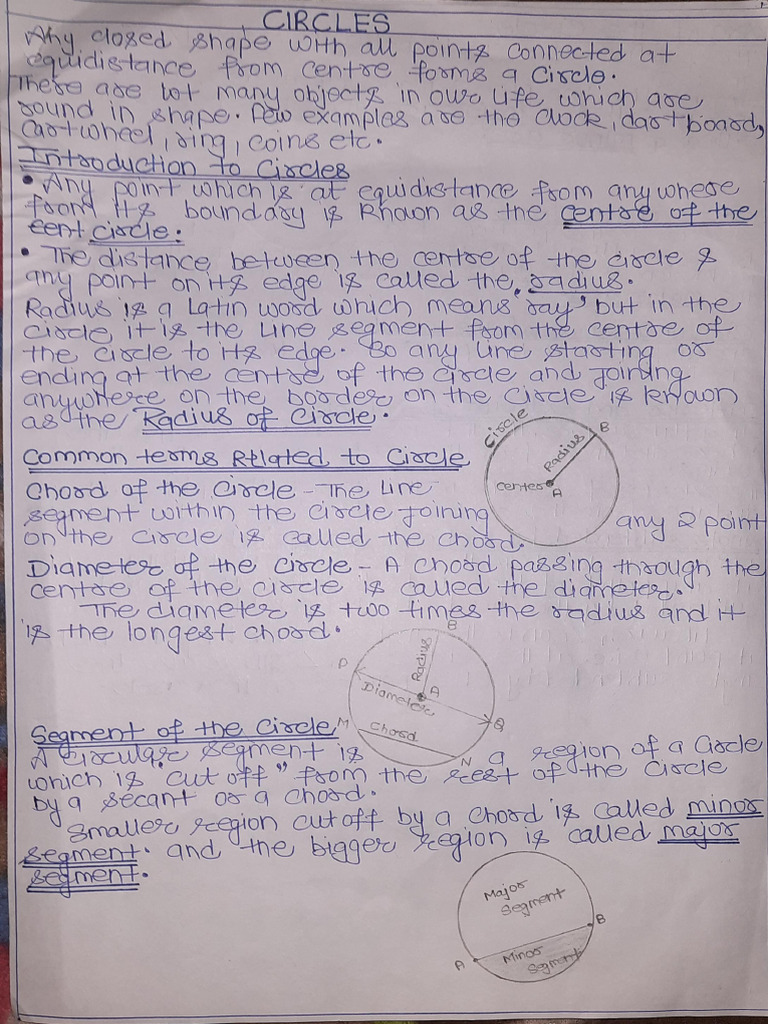 CIRCLES
Any closed shape with all points connected at
equidistance from centre forms a Circle.
There are lot many objects in our life which are
round in shape. Few examples are the clock, dartboard,
Cartwheel, ring, coins etc.
Introduction to Circles
• Any point which is at equidistance from anywhere
from its boundary is known as the centre of the
cent circle.
• The distance between the centre of the circle &
any point on its edge is called the radius.
Radius is a Latin word which means 'ray' but in the
circle it is the line segment from the centre of
the circle to its edge. So any line starting or
ending at the centre of the circle and joining
anywhere on the border on the circle is known
as the Radius of Circle.
Circle
B
Radius
center
A
Common terms Related to Circle
Chord of the Circle - The line
segment within the circle joining any 2 point
on the circle is called the chord.
Diameter of the circle - A chord passing through the
centre of the circle is called the diameter.
The diameter is two times the radius and it
is the longest chord.
B
P
Radius
A
Diameter
Q
M
Chord
N
Segment of the Circle
A circular segment is a region of a Circle
which is "cut off" from the rest of the Circle
by a secant or a chord.
Smaller region cut off by a chord is called minor
segment. and the bigger region is called major
segment.
Major
Segment
B
A
Minor
Segment